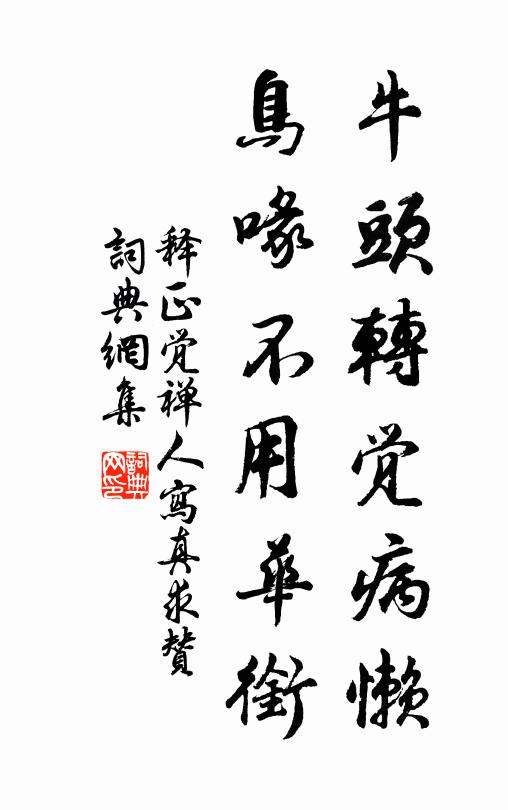 牛頭轉覚病懶
鳥喙不用華銜
释正覚禅人寫真求贊
詞典網集
詞典網印